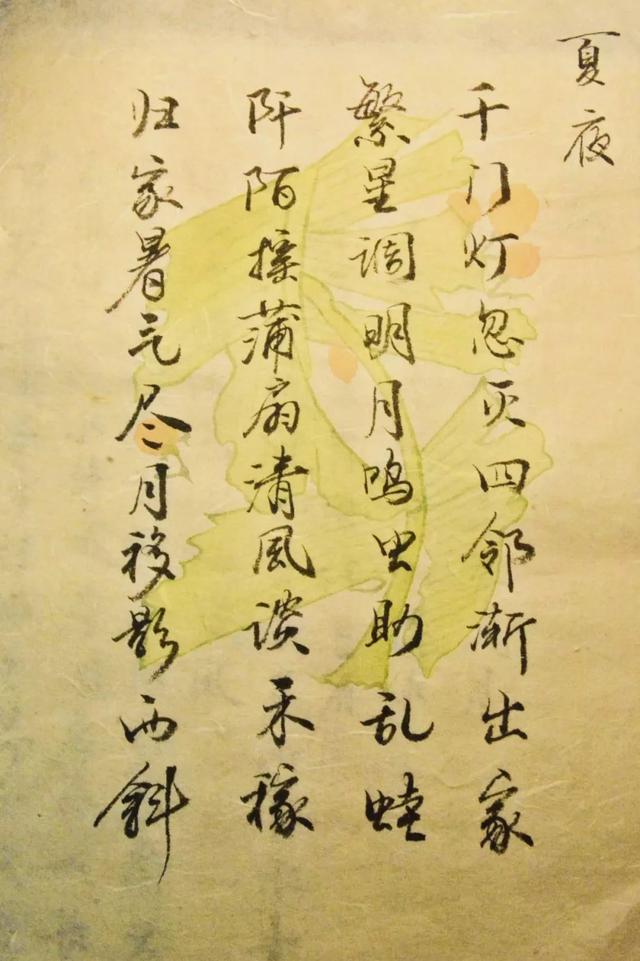 夏夜
千门灯忽灭四邻渐出家
繁星调明月鸣虫助乱蛙
阡陌摇蒲扇清风谈禾稼
归家暑气尽月移影西斜